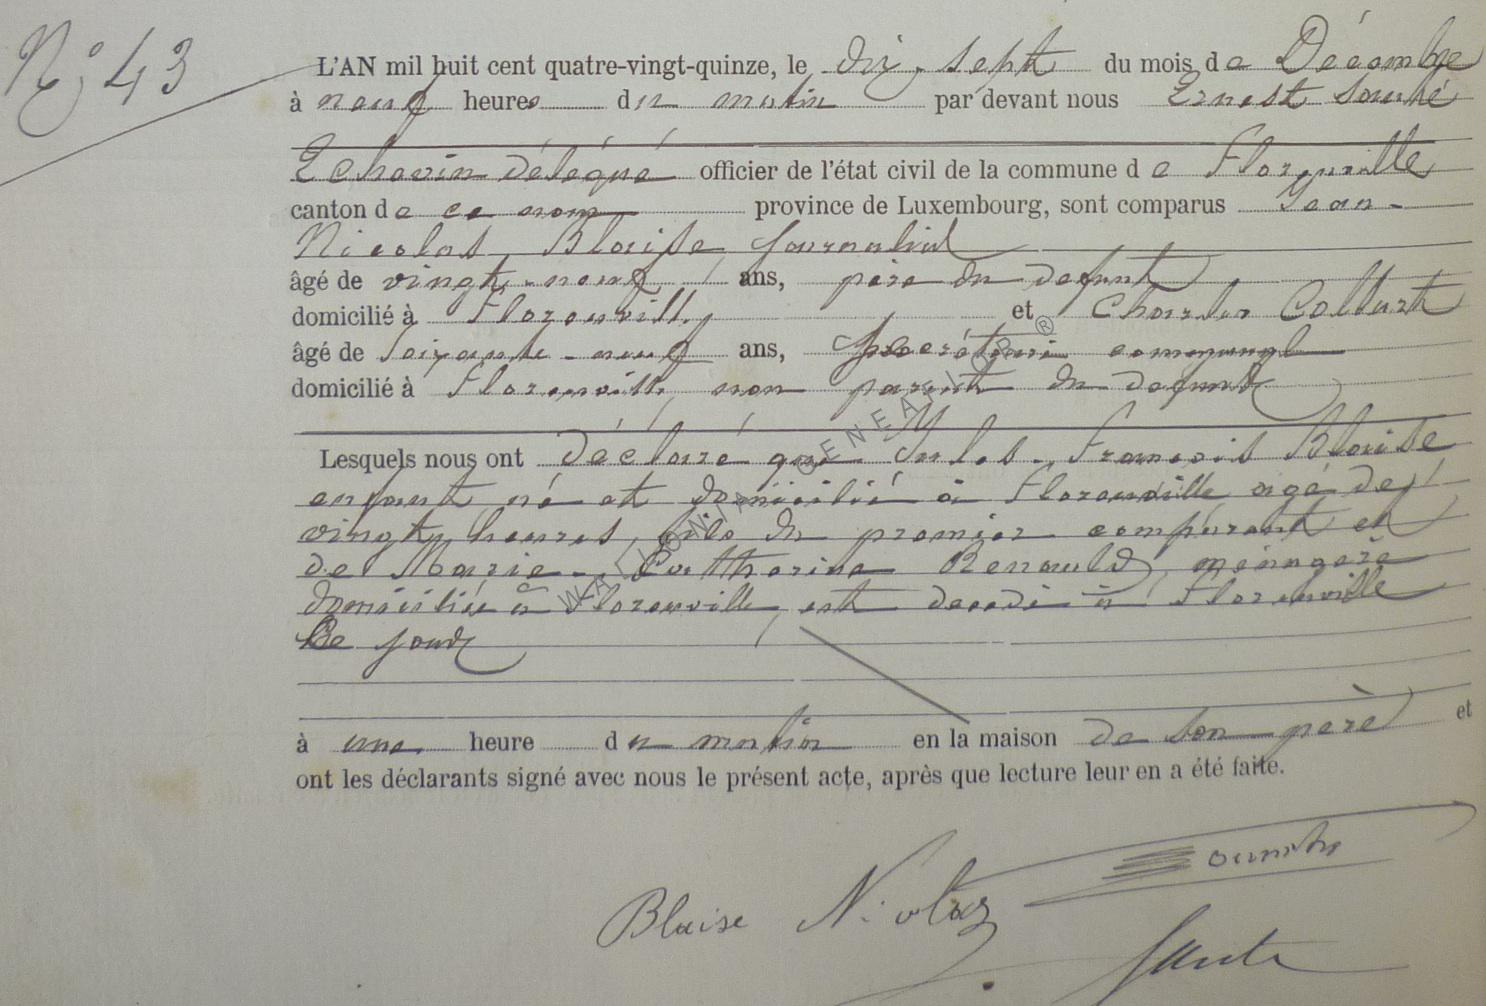 N° 43
L'AN mil huit cent quatre-vingt-quinze, le dix-sept du mois de Décembre
à neuf heures du matin par devant nous Ernest
Echevin délégué officier de l'état civil de la commune de Florenville
canton de ce nom province de Luxembourg, sont comparus Jean-
Nicolas Blaise, journalier
âgé de vingt-neuf ans, père du defunt
domicilié à Florenville et Charles
âgé de soixante-neuf ans, secrétaire communal
domicilié à Florenville, non parent du defunt
Lesquels nous ont déclaré que Jules-François Blaise
enfant, né et domicilié à Florenville agé de
vingt heures, fils du premier comparant et
de Marie-Catherine Renauld, ménagère
domiciliée à Florenville, est decedé à Florenville
Ce jour
à une heure du matin en la maison de son père et
ont les déclarants signé avec nous le présent acte, après que lecture leur en a été faite.
Blaise Nicolas
WALLONIA GENEALOR ®